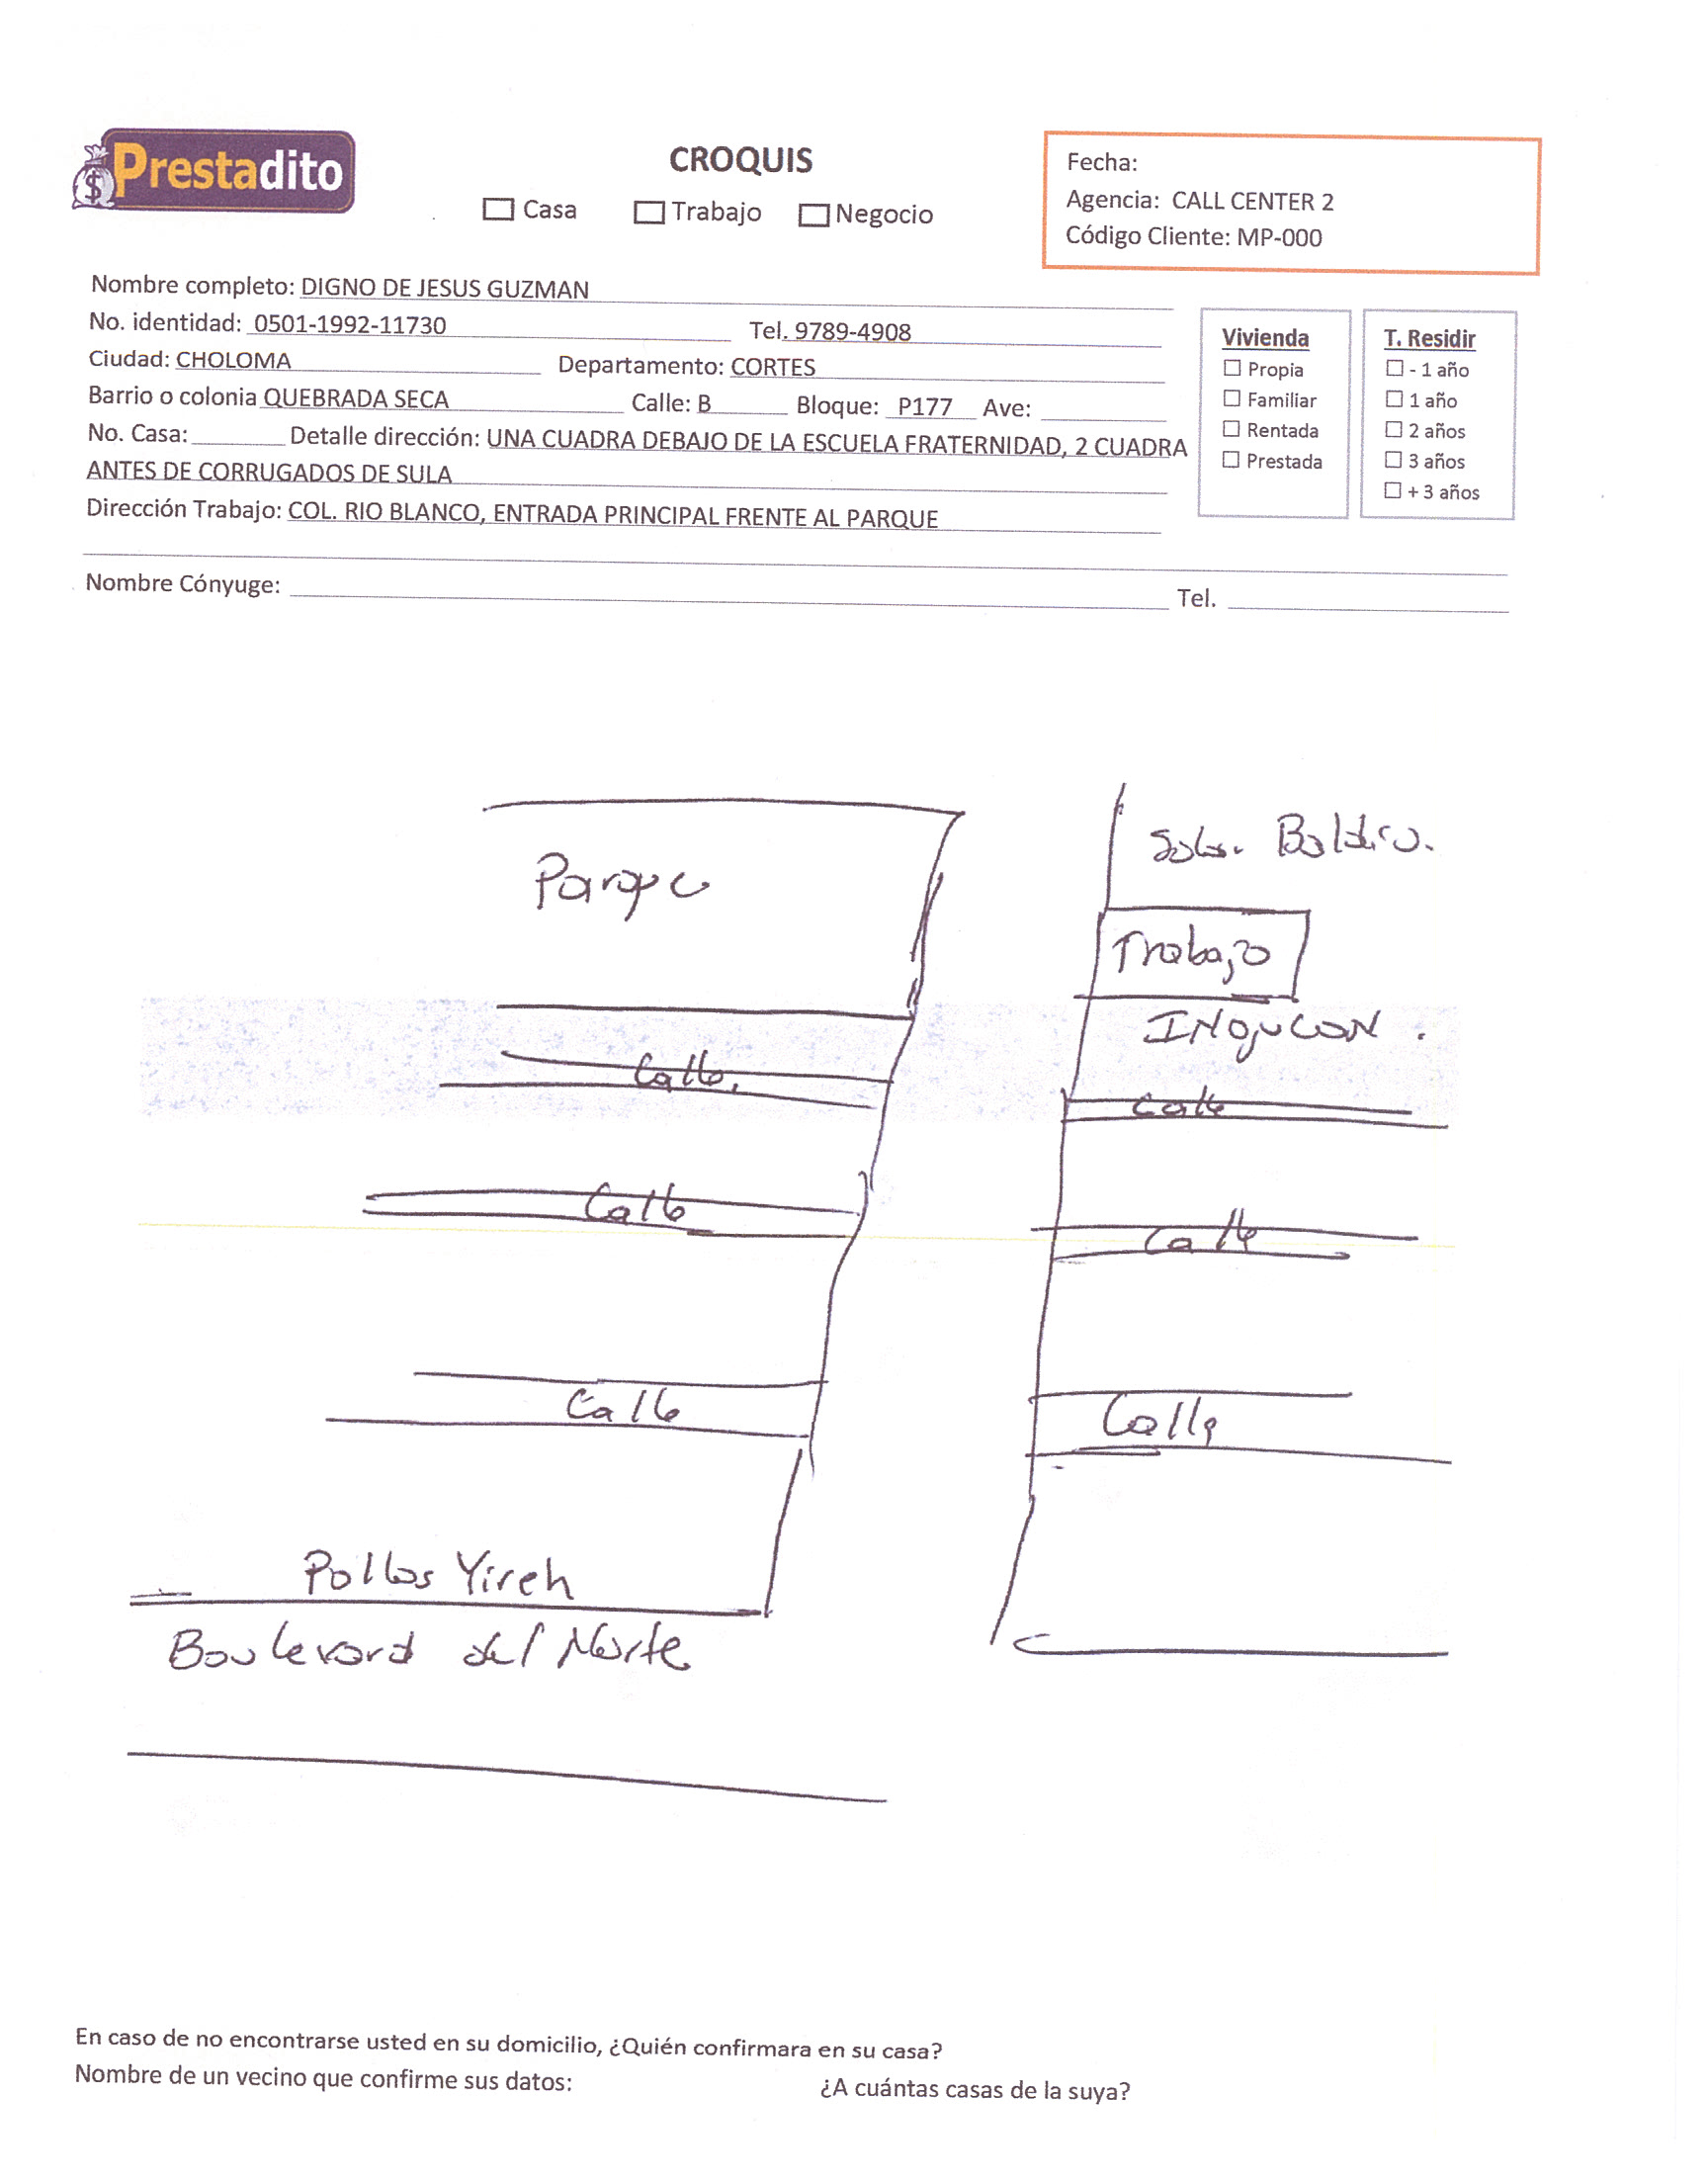 Prestadito
CROQUIS
Casa Trabajo Negocio
Fecha:
Agencia: CALL CENTER 2
Código Cliente: MP-000
Nombre completo: DIGNO DE JESUS GUZMAN
No. identidad: 0501-1992-11730 Tel. 9789-4908
Ciudad: CHOLOMA Departamento: CORTES
Barrio o colonia QUEBRADA SECA Calle: B Bloque: P177 Ave:
No. Casa: Detalle dirección: UNA CUADRA DEBAJO DE LA ESCUELA FRATERNIDAD, 2 CUADRA
ANTES DE CORRUGADOS DE SULA
Dirección Trabajo: COL. RIO BLANCO, ENTRADA PRINCIPAL FRENTE AL PARQUE
Nombre Cónyuge: Tel.
Vivienda
Propia
Familiar
Rentada
Prestada
T. Residir
- 1 año
1 año
2 años
3 años
+ 3 años
Solar Baldío.
Parque
Trabajo
Calle.
Calle
Calle
Calle
Calle
Calle
Pollos Yireh
Boulevard del Norte
En caso de no encontrarse usted en su domicilio, ¿Quién confirmara en su casa?
Nombre de un vecino que confirme sus datos: ¿A cuántas casas de la suya?